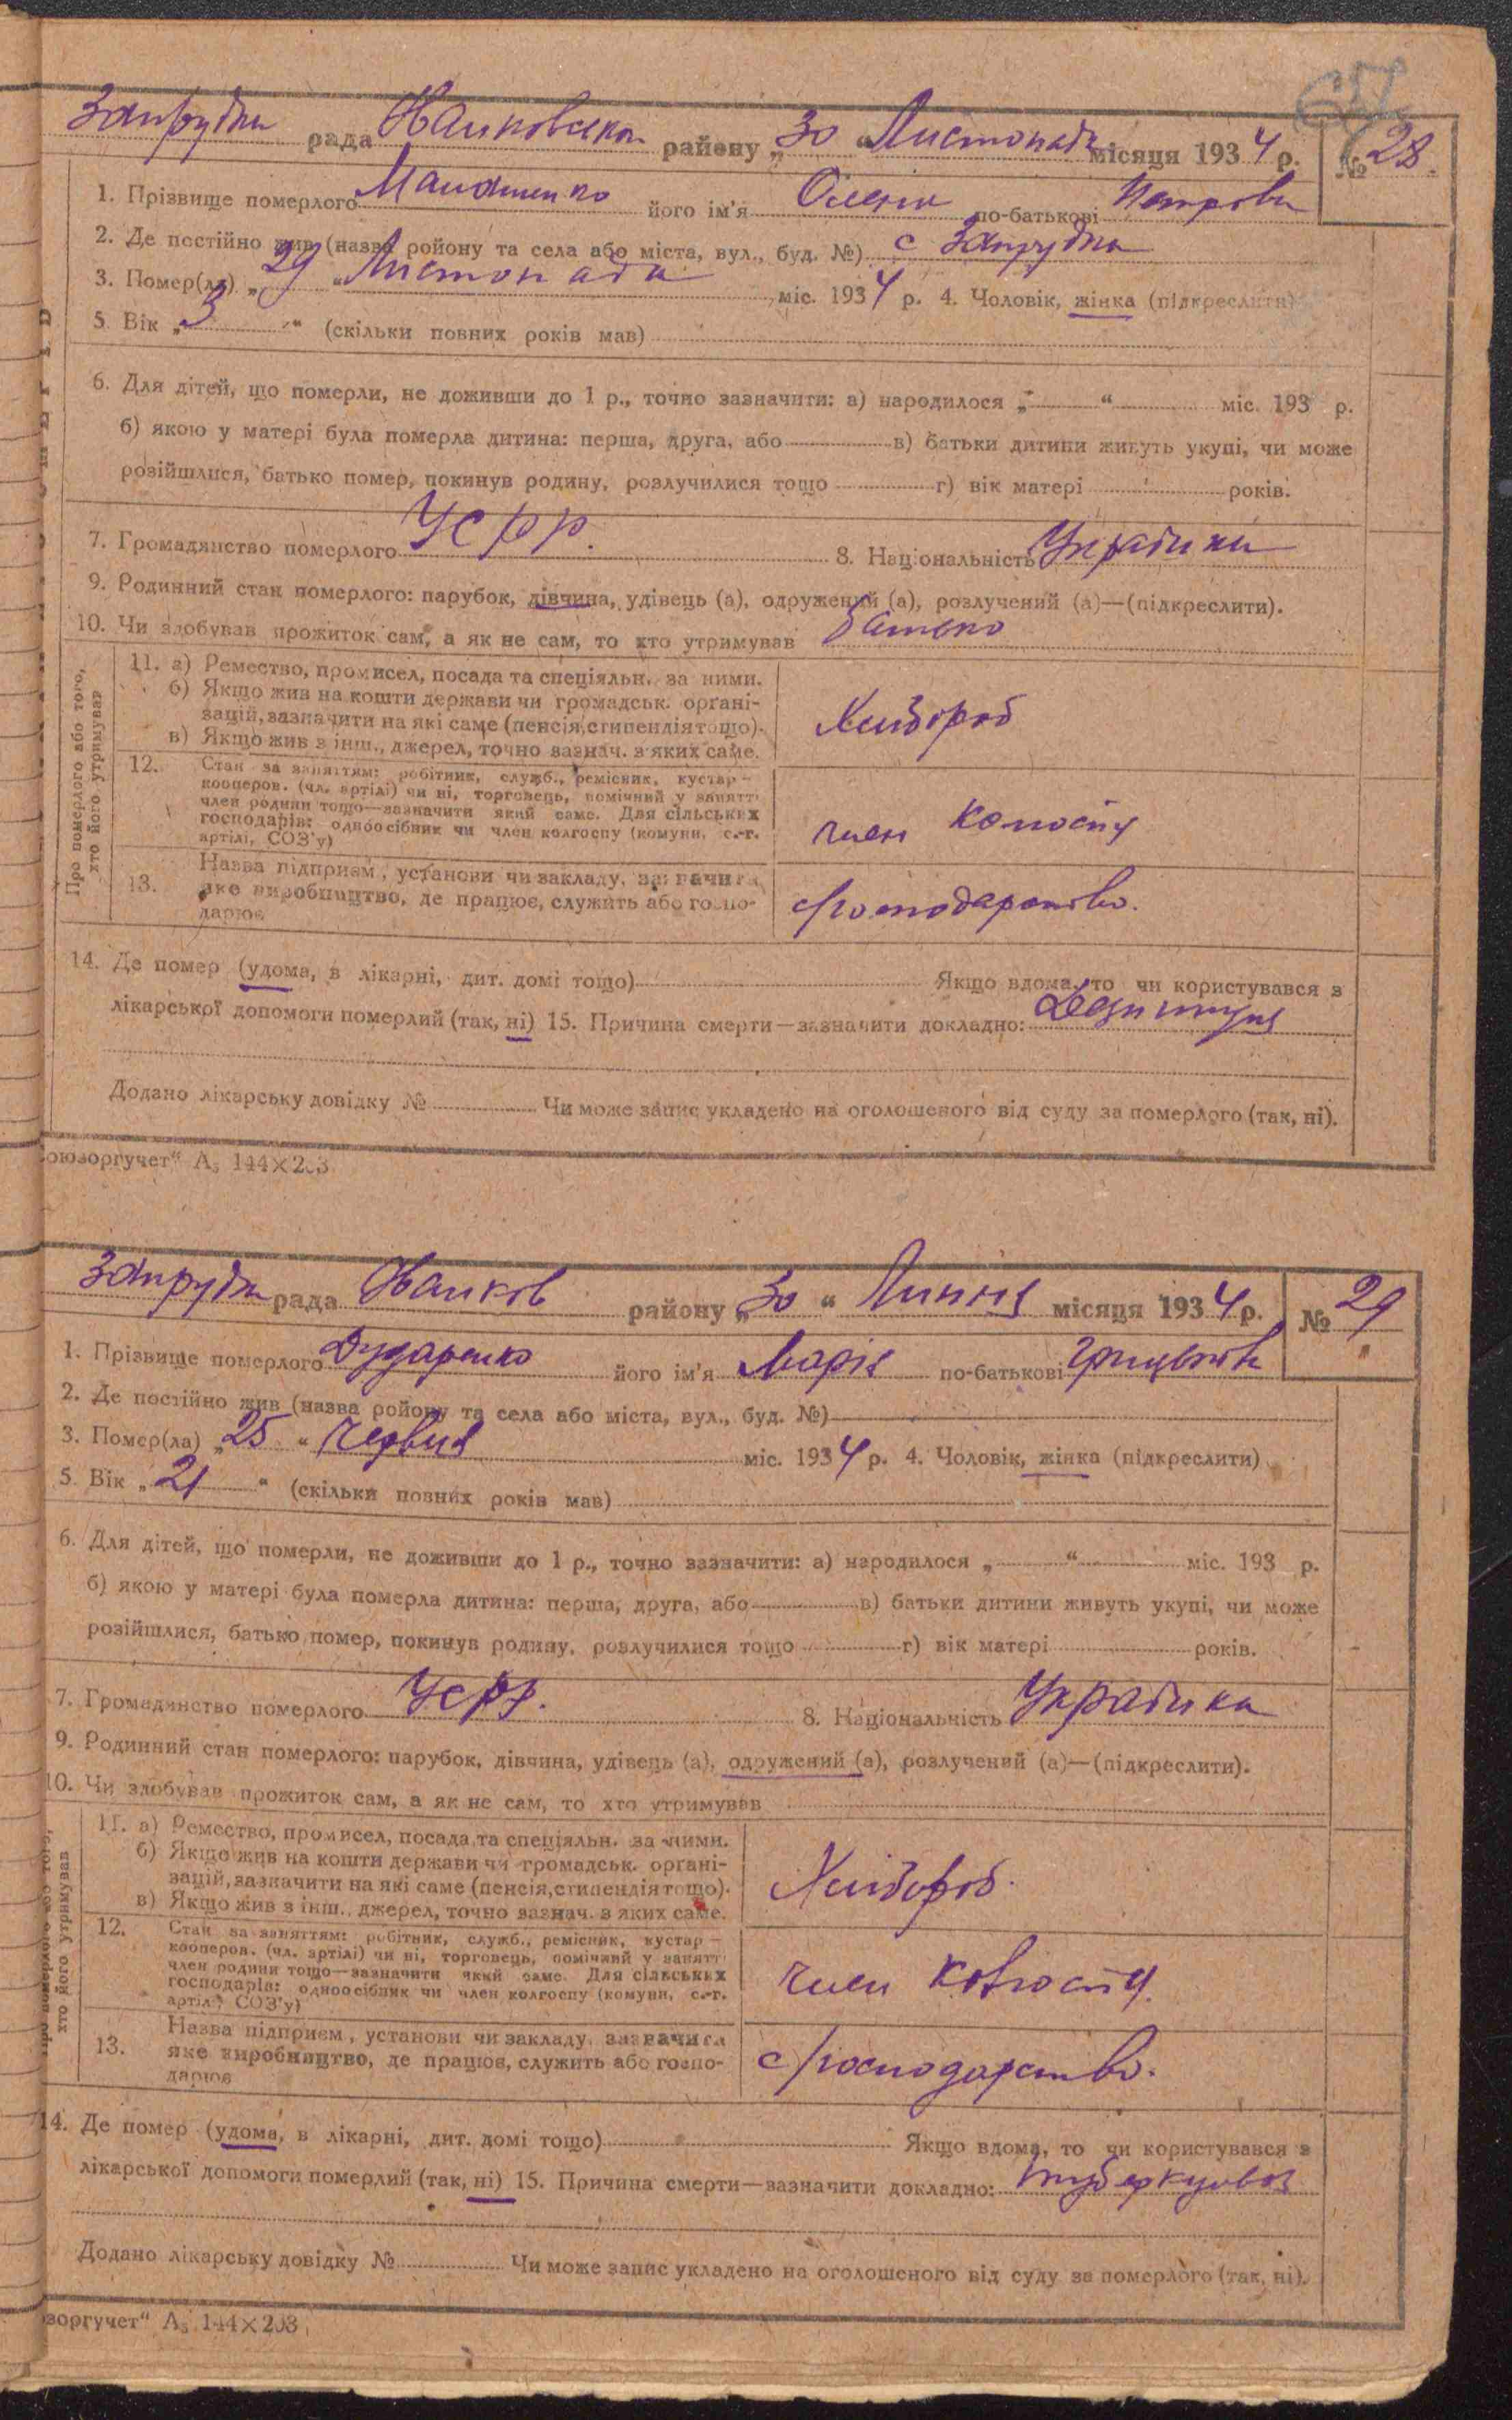 657
Запрудка рада району „30“ Листопада місяця 1934 р. № 28.
1. Прізвище померлого його ім'я Олена по-батькові Петрови
2. Де постійно жив (назва ройону та села або міста, вул., буд. №) с Запрудка
3. Помер(ла) „29“ Листопада міс. 1934 р. 4. Чоловік, жінка (підкреслити)
5. Вік „3“ (скільки повних років мав)
6. Для дітей, що померли, не доживши до 1 р., точно зазначити: а) народилося „ “ міс. 193 р.
б) якою у матері була померла дитина: перша, друга, або в) батьки дитини живуть укупі, чи може
розійшлися, батько помер, покинув родину, розлучилися тощо г) вік матері років.
7. Громадянство померлого УСРР. 8. Національність
9. Родинний стан померлого: парубок, дівчина, удівець (а), одружений (а), розлучений (а)—(підкреслити).
10. Чи здобував прожиток сам, а як не сам, то хто утримував Батько
Про померлого або того,
хто його утримував
11. а) Ремество, промисел, посада та спеціяльн. за ними.
б) Якщо жив на кошти держави чи громадськ. органі-
зацій, зазначити на які саме (пенсія, стипендія тощо).
в) Якщо жив з інш., джерел, точно зазнач. з яких саме.
Хлібороб
12. Стан за заняттям: робітник, служб., ремісник, кустар—
кооперов. (чл. артілі) чи ні, торговець, помічний у занятті
член родини тощо—зазначити який саме. Для сільських
господарів: одноосібник чи член колгоспу (комуни, с.-г.
артілі, СОЗ'у)
член колгоспу
13. Назва підприєм, установи чи закладу, зазначити
яке виробництво, де працює, служить або госпо-
дарює
с/господарство.
14. Де помер (удома, в лікарні, дит. домі тощо) Якщо вдома, то чи користувався з
лікарської допомоги померлий (так, ні) 15. Причина смерти—зазначити докладно:
Додано лікарську довідку № Чи може запис укладено на оголошеного від суду за померлого (так, ні).
оюзоргучет“ А₅ 144×203
Запрудка рада району „30“ Липня місяця 1934 р. № 29
1. Прізвище померлого Дударенко його ім'я Марія по-батькові
2. Де постійно жив (назва ройону та села або міста, вул., буд. №)
3. Помер(ла) „25“ Червня міс. 1934 р. 4. Чоловік, жінка (підкреслити)
5. Вік „21“ (скільки повних років мав)
6. Для дітей, що померли, не доживши до 1 р., точно зазначити: а) народилося „ “ міс. 193 р.
б) якою у матері була померла дитина: перша, друга, або в) батьки дитини живуть укупі, чи може
розійшлися, батько помер, покинув родину, розлучилися тощо г) вік матері років.
7. Громадянство померлого УСРР. 8. Національність Українка
9. Родинний стан померлого: парубок, дівчина, удівець (а), одружений (а), розлучений (а)—(підкреслити).
10. Чи здобував прожиток сам, а як не сам, то хто утримував
Про померлого або того,
хто його утримував
11. а) Ремество, промисел, посада та спеціяльн. за ними.
б) Якщо жив на кошти держави чи громадськ. органі-
зацій, зазначити на які саме (пенсія, стипендія тощо).
в) Якщо жив з інш., джерел, точно зазнач. з яких саме.
Хлібороб.
12. Стан за заняттям: робітник, служб., ремісник, кустар—
кооперов. (чл. артілі) чи ні, торговець, помічний у занятті
член родини тощо—зазначити який саме. Для сільських
господарів: одноосібник чи член колгоспу (комуни, с.-г.
артілі, СОЗ'у)
член колгоспу.
13. Назва підприєм, установи чи закладу, зазначити
яке виробництво, де працює, служить або госпо-
дарює
с/господарство.
14. Де помер (удома, в лікарні, дит. домі тощо) Якщо вдома, то чи користувався з
лікарської допомоги померлий (так, ні) 15. Причина смерти—зазначити докладно: туберкульоз
Додано лікарську довідку № Чи може запис укладено на оголошеного від суду за померлого (так, ні).
зоргучет“ А₅ 144×203